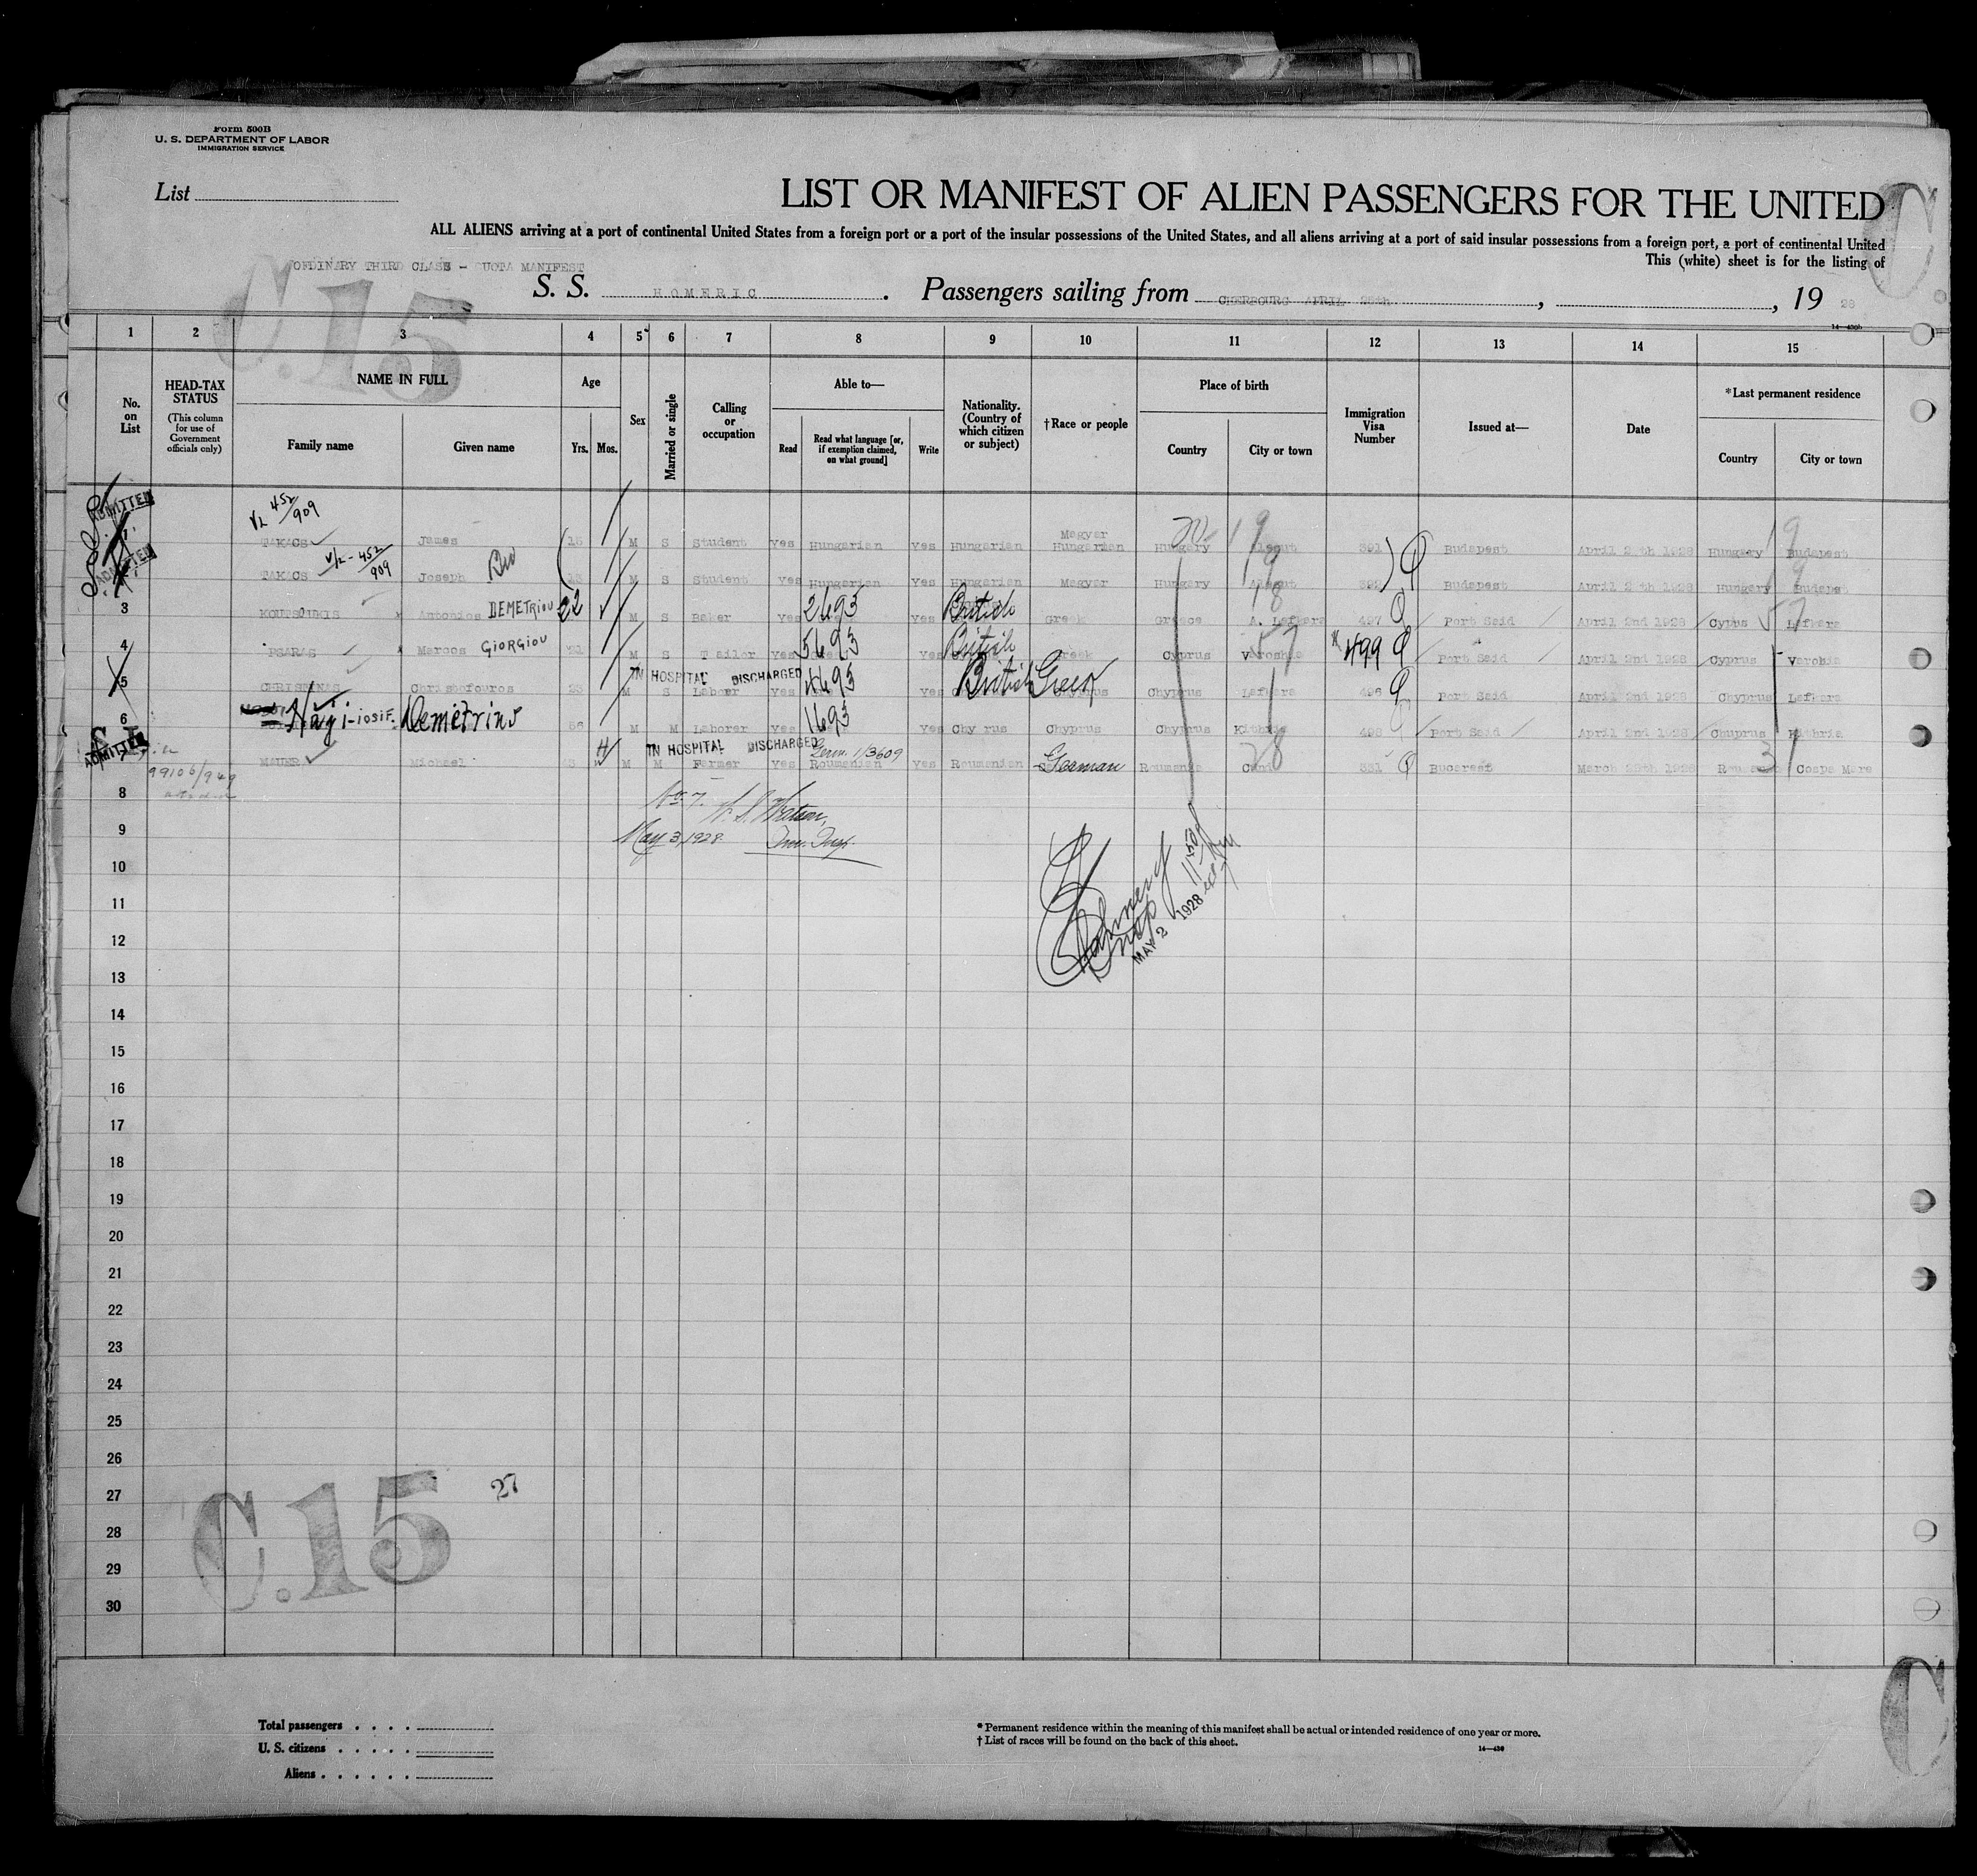 Form 500B
U. S. DEPARTMENT OF LABOR
IMMIGRATION SERVICE
List
LIST OR MANIFEST OF ALIEN PASSENGERS FOR THE UNITED
ALL ALIENS arriving at a port of continental United States from a foreign port or a port of the insular possessions of the United States, and all aliens arriving at a port of said insular possessions from a foreign port, a port of continental United
This (white) sheet is for the listing of
ORDINARY THIRD CLASS - QUOTA MANIFEST
S. S. HOMERIC. Passengers sailing from CHERBOURG APRIL 25th, , 19 28
C.15
C
14-430b
1 2 3 4 5 6 7 8 9 10 11 12 13 14 15
No. on List
HEAD-TAX STATUS
(This column for use of Government officials only)
NAME IN FULL
Family name Given name
Age
Yrs. Mos.
Sex
Married or single
Calling or occupation
Able to—
Read
Read what language [or, if exemption claimed, on what ground]
Write
Nationality. (Country of which citizen or subject)
†Race or people
Place of birth
Country City or town
Immigration Visa Number
Issued at—
Date
*Last permanent residence
Country City or town
ADMITTED
V/2 452/909
TAKACS James 18 M S Student Yes Hungarian Yes Hungarian Magyar Hungarian Hungary 391 Budapest April 2 th 1928 Hungary Budapest
ADMITTED
V/2 - 452/909
TAKACS Joseph M S Student Yes Hungarian Yes Hungarian Magyar Hungary 392 Budapest April 2 th 1928 Hungary Budapest
3 KOUTSOUKIS Antonios DEMETRIOU 22 M S Baker Yes 2693 Yes British Greek Greece A. Lefkara 497 Port Said April 2nd 1928 Cyprus Lefkara
4 PSARAS Marcos GIORGIOU M S Tailor Yes 5693 Yes British Greek Cyprus Varoshia 499 Port Said April 2nd 1928 Cyprus Varohia
IN HOSPITAL DISCHARGED
5 CHRISMINAS Christofouros 23 M S Laborer Yes 4693 Yes British Greek Chyprus Lefkara 496 Port Said April 2nd 1928 Chyprus Lefkara
6 Hagi-iosif. Demetrino M M Laborer Yes 1693 Yes Chy rus Chyprus Chyprus Kithria 498 Port Said April 2nd 1928 Chuprus Kithria
ADMITTED
IN HOSPITAL DISCHARGED
Germ. 1/3609
MAUER Michael M M Farmer Yes Roumanian Yes Roumanian German Roumania 331 Bucarest March 28th 1928 Cospa Mare
99106/949
8
No 7. W. S. Watson,
9
May 3, 1928 Imm. Insp.
10
11
12
MAY 2 1928
13
14
15
16
17
18
19
20
21
22
23
24
25
26
27
C.15
27
28
29
30
C
Total passengers . . . .
U. S. citizens . . . . .
Aliens . . . . . .
* Permanent residence within the meaning of this manifest shall be actual or intended residence of one year or more.
† List of races will be found on the back of this sheet.
14-430